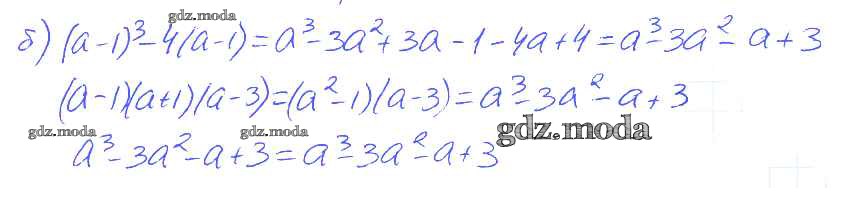 gdz.moda
б) (a-1)³-4(a-1)=a³-3a²+3a-1-4a+4=a³-3a²-a+3
(a-1)(a+1)(a-3)=(a²-1)(a-3)=a³-3a²-a+3
gdz.moda gdz.moda gdz.moda
a³-3a²-a+3=a³-3a²-a+3